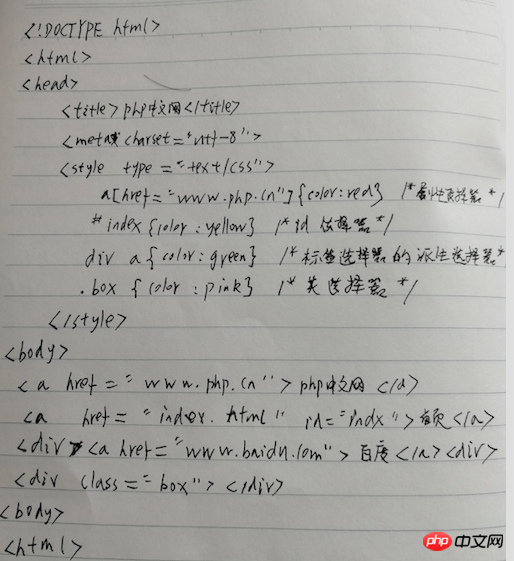 <!DOCTYPE html>
<html>
<head>
<title>php中文网</title>
<meta charset="utf-8">
<style type="text/css">
a[href="www.php.cn"]{color:red} /*属性选择器*/
#index{color:yellow} /*id选择器*/
div a{color:green} /*标签选择器的派生选择器*
.box {color:pink} /*类选择器*/
</style>
<body>
<a href="www.php.cn">php中文网</a>
<a href="index.html" id="indx">首页</a>
<div><a href="www.baidu.com">百度</a><div>
<div class="box"></div>
<body>
<html>
php 中文网